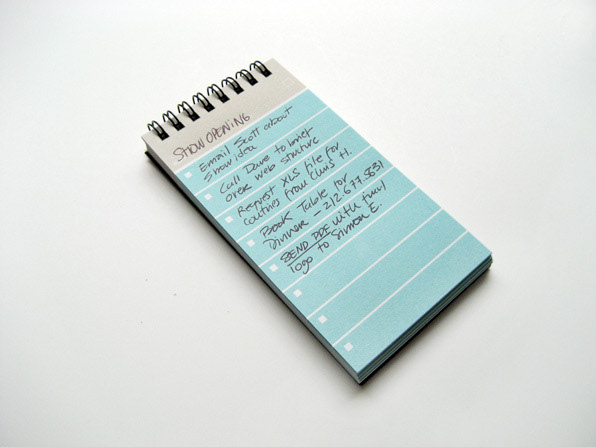 SHOW OPENING
Email Scott about
show idea
Call Dave to brief
over web structure
Request XLS file for
countries from Chris H.
Book Table for
Dinner - 212.677.5831
SEND PDF with final
logo to Simon E.